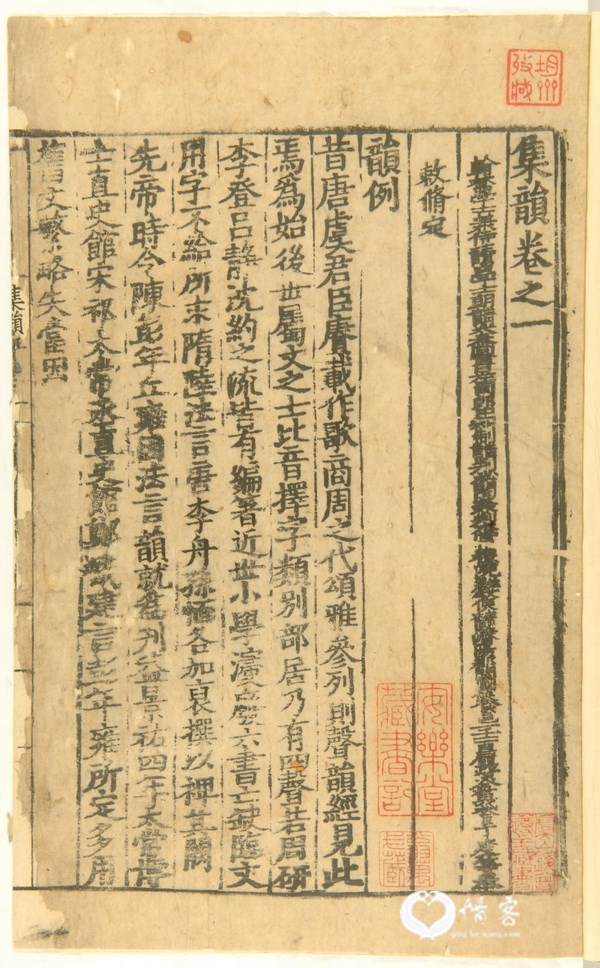 集韻卷之一
翰林學士兼侍讀學士朝請大夫尚書左司郎中知制誥
敕脩定
韻例
昔唐虞君臣賡載作歌商周之代頌雅參列則聲韻經見此
焉爲始後世屬文之士比音擇字類別部居乃有四聲若周研
李登呂靜沈約之流皆有編著近世小學寖廢六書亡缺臨文
用字不給所求隋陸法言唐李舟孫愐各加裒撰以裨其闕
先帝時令陳彭年丘雍因法言韻就爲刊益景祐四年太常博
士直史館宋祁太常丞直史館鄭戩建言彭年雍所定多用
舊文繁略失當因
集韻
安樂堂藏書記